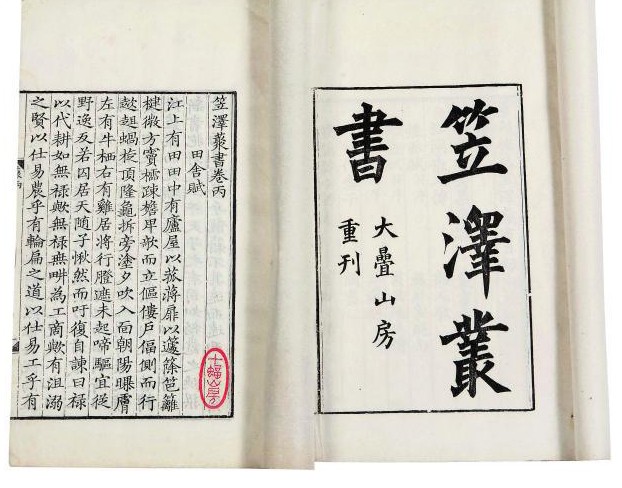 笠澤叢
書
大疊山房
重刊
笠澤叢書卷丙
田舍賦
江上有田田中有廬屋以菰蔣扉以籧篨笆籬
楗微方竇櫺疎檐卑欹而立傴僂戶偪側而行
趑趄蝸旋頂隆龜拆旁塗夕吹入面朝陽曝膚
左有牛栖右有雞居將行瞪遮未起啼驅宜從
野逸反若囚居天隨子愀然而吁復自諫曰祿
以代耕如無祿歟無祿無畊為工商歟有沮溺
之賢以仕易農乎有輪扁之道以仕易工乎有